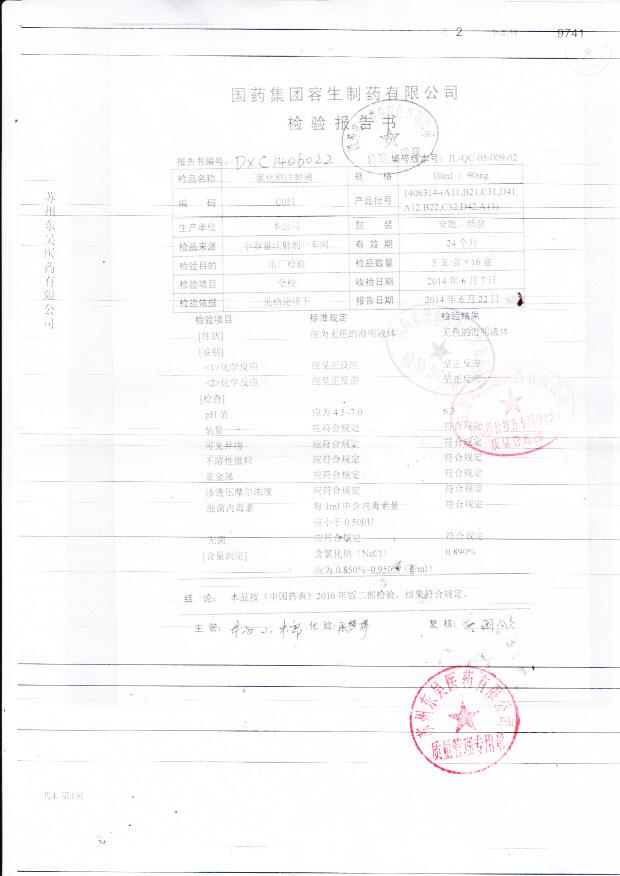 2
9741
国药集团容生制药有限公司
检验报告书
报告书编号: DXC1406022 编号版本号: JL-QC-05-009-02
检品名称 氯化钠注射液 规 格 10ml : 90mg
编 码 C051 产品批号 1406314-(A11,B21,C31,D41,
A12,B22,C32,D42,A13)
生产单位 本公司 包 装 安瓿、纸盒
检品来源 小容量注射剂一车间 有 效 期 24 个月
检验目的 出厂检验 检品数量 5 支/盒×16 盒
检验项目 全检 收检日期 2014 年 6 月 7 日
检验依据 见结论项下 报告日期 2014 年 6 月 22 日
检验项目 标准规定 检验结果
[性状] 应为无色的澄明液体 无色的澄明液体
[鉴别]
<1>化学反应 应呈正反应 呈正反应
<2>化学反应 应呈正反应 呈正反应
[检查]
pH 值 应为 4.5~7.0 6.3
装量 应符合规定 符合规定
可见异物 应符合规定 符合规定
不溶性微粒 应符合规定 符合规定
重金属 应符合规定 符合规定
渗透压摩尔浓度 应符合规定 符合规定
细菌内毒素 每 1ml 中含内毒素量 符合规定
应小于 0.50EU
无菌 应符合规定 符合规定
[含量测定] 含氯化钠（NaCl） 0.890%
应为 0.850%~0.950%（g/ml）
结 论: 本品按《中国药典》2010 年版二部检验，结果符合规定。
主管: 化验: 复核:
苏州东吴医药有限公司
苏州东吴医药有限公司
质量管理专用章
检验报告专用章(2)
质量管理部
共4, 第4页